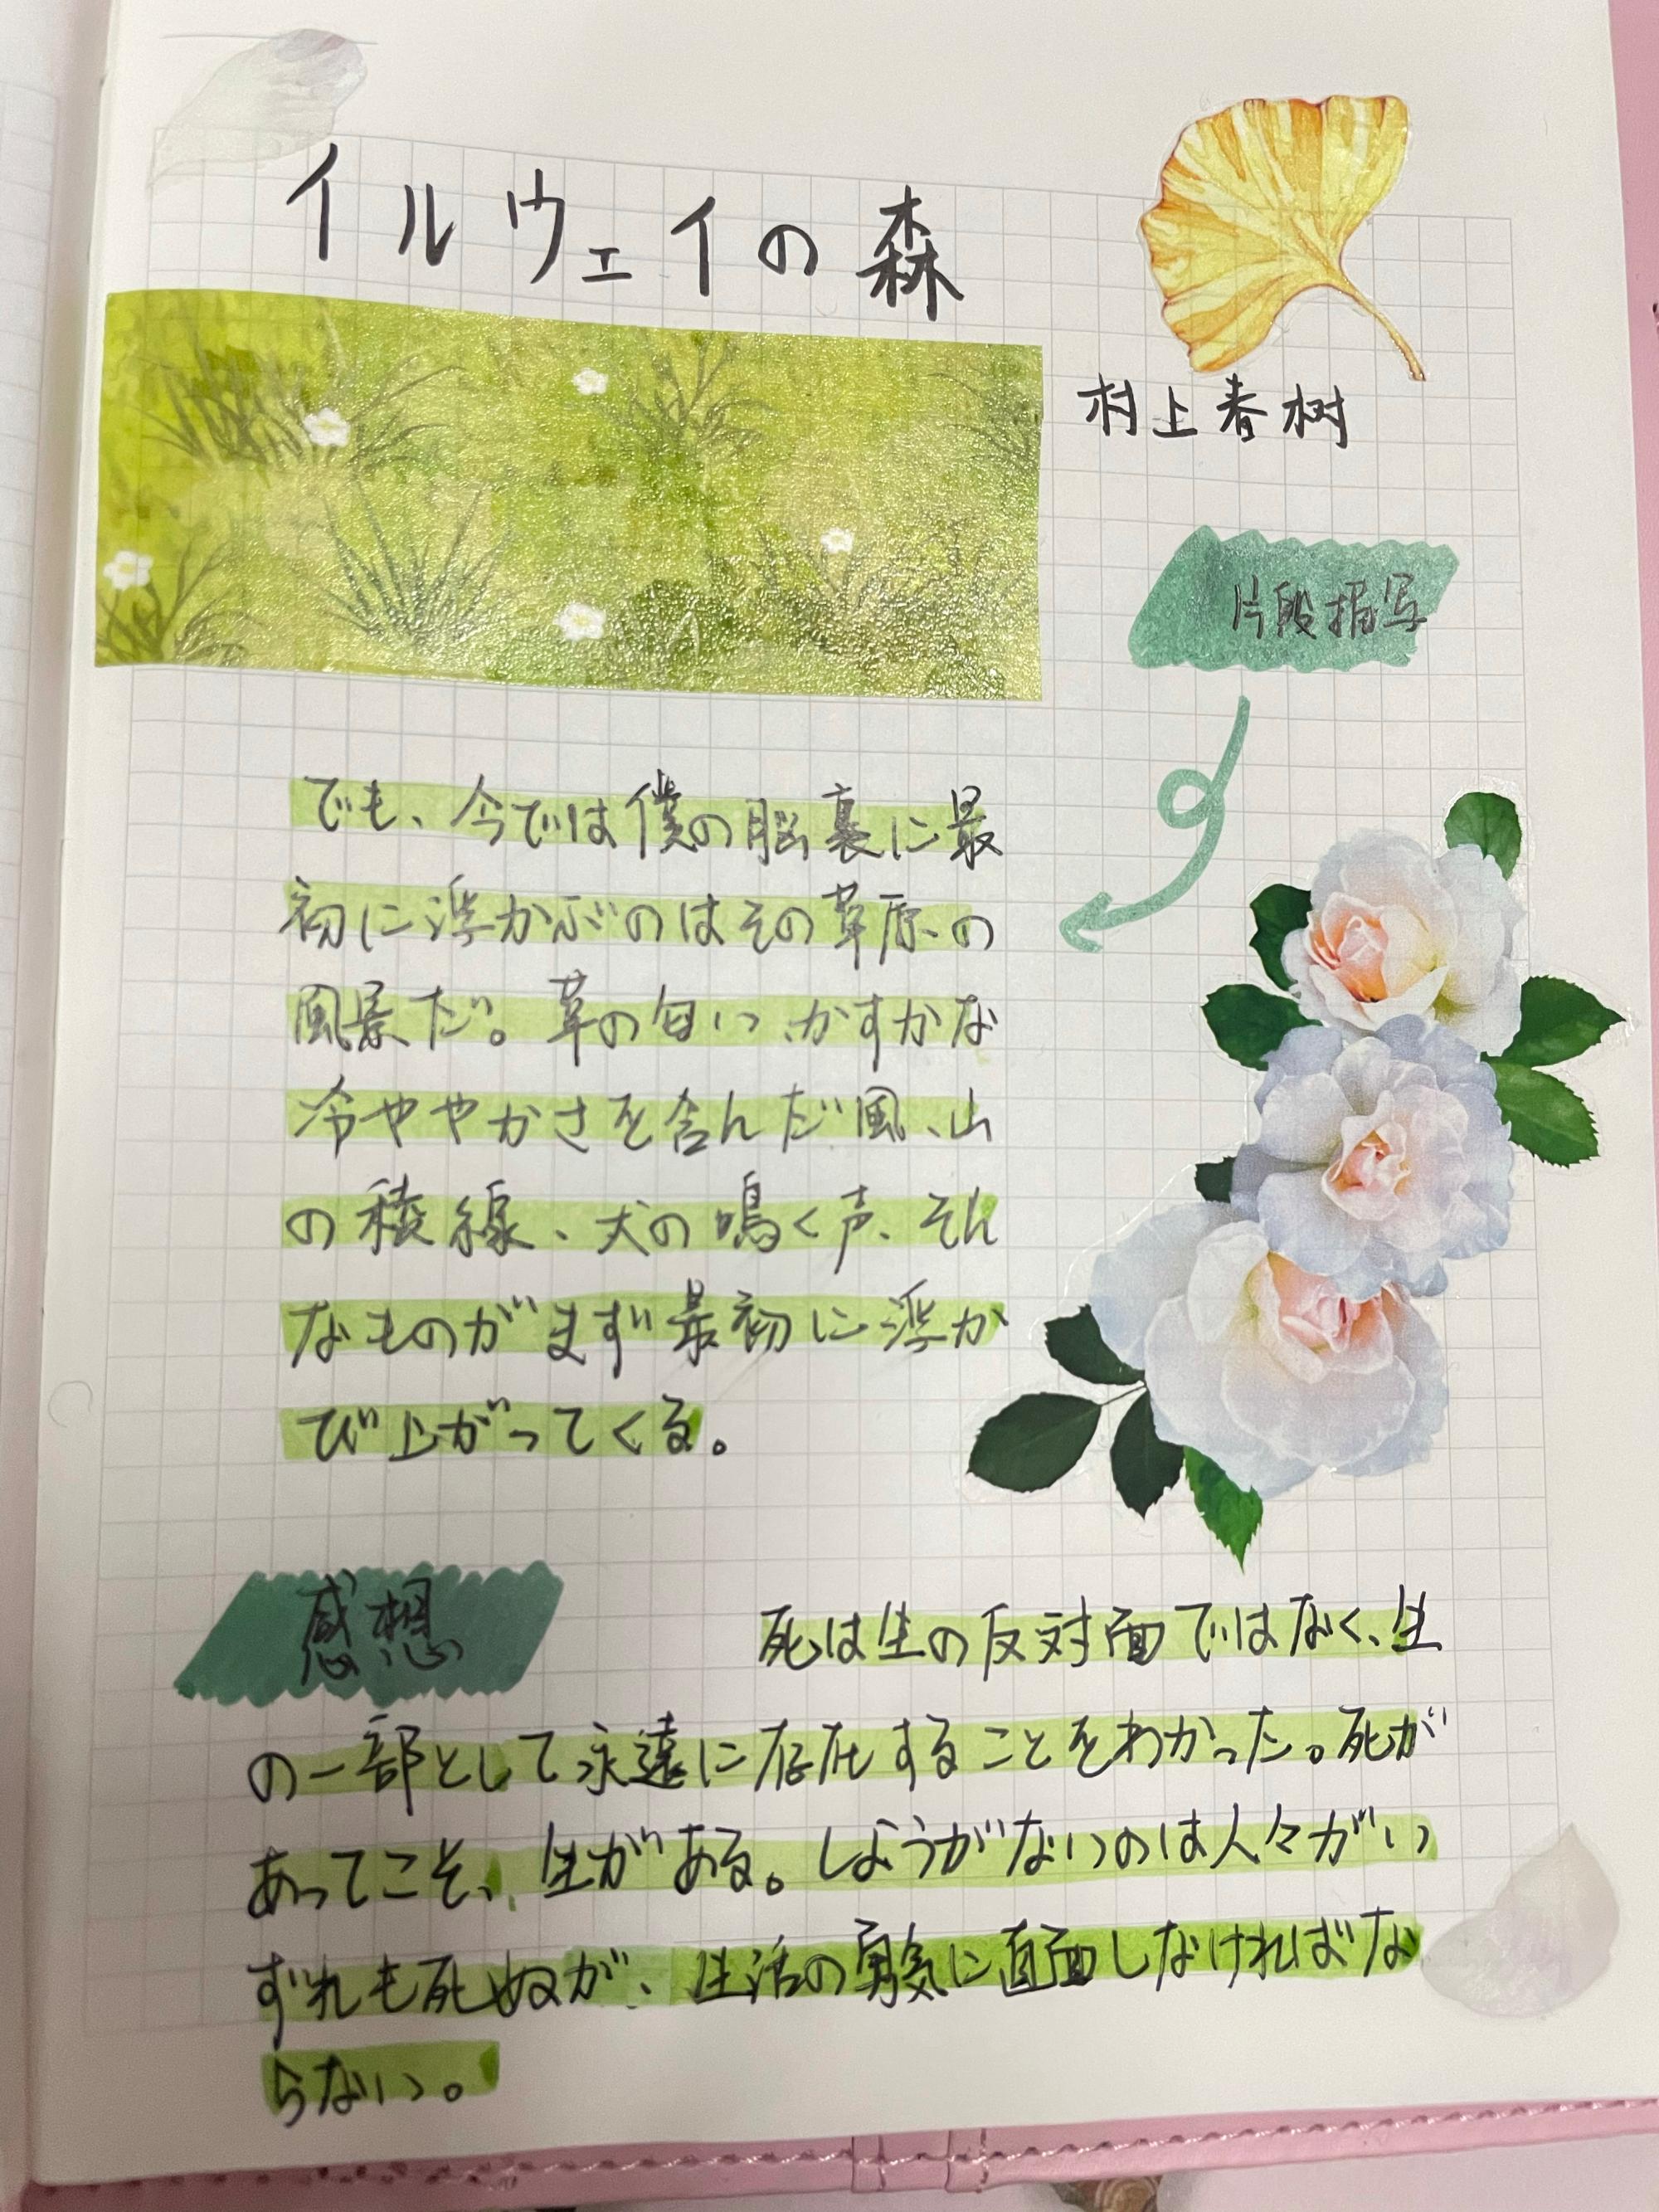 イルウェイの森
村上春树
片段描写
でも、今では僕の脳裏に最
初に浮かぶのはその草原の
風景だ。草の匂い、かすかな
冷ややかさを含んだ風、山
の稜線、犬の鳴く声、そん
なものがまず最初に浮か
び上がってくる。
感想
死は生の反対面ではなく、生
の一部として永遠に存在することをわかった。死が
あってこそ、生がある。しようがないのは人々がい
ずれも死ぬが、生活の勇気に直面しなければな
らない。